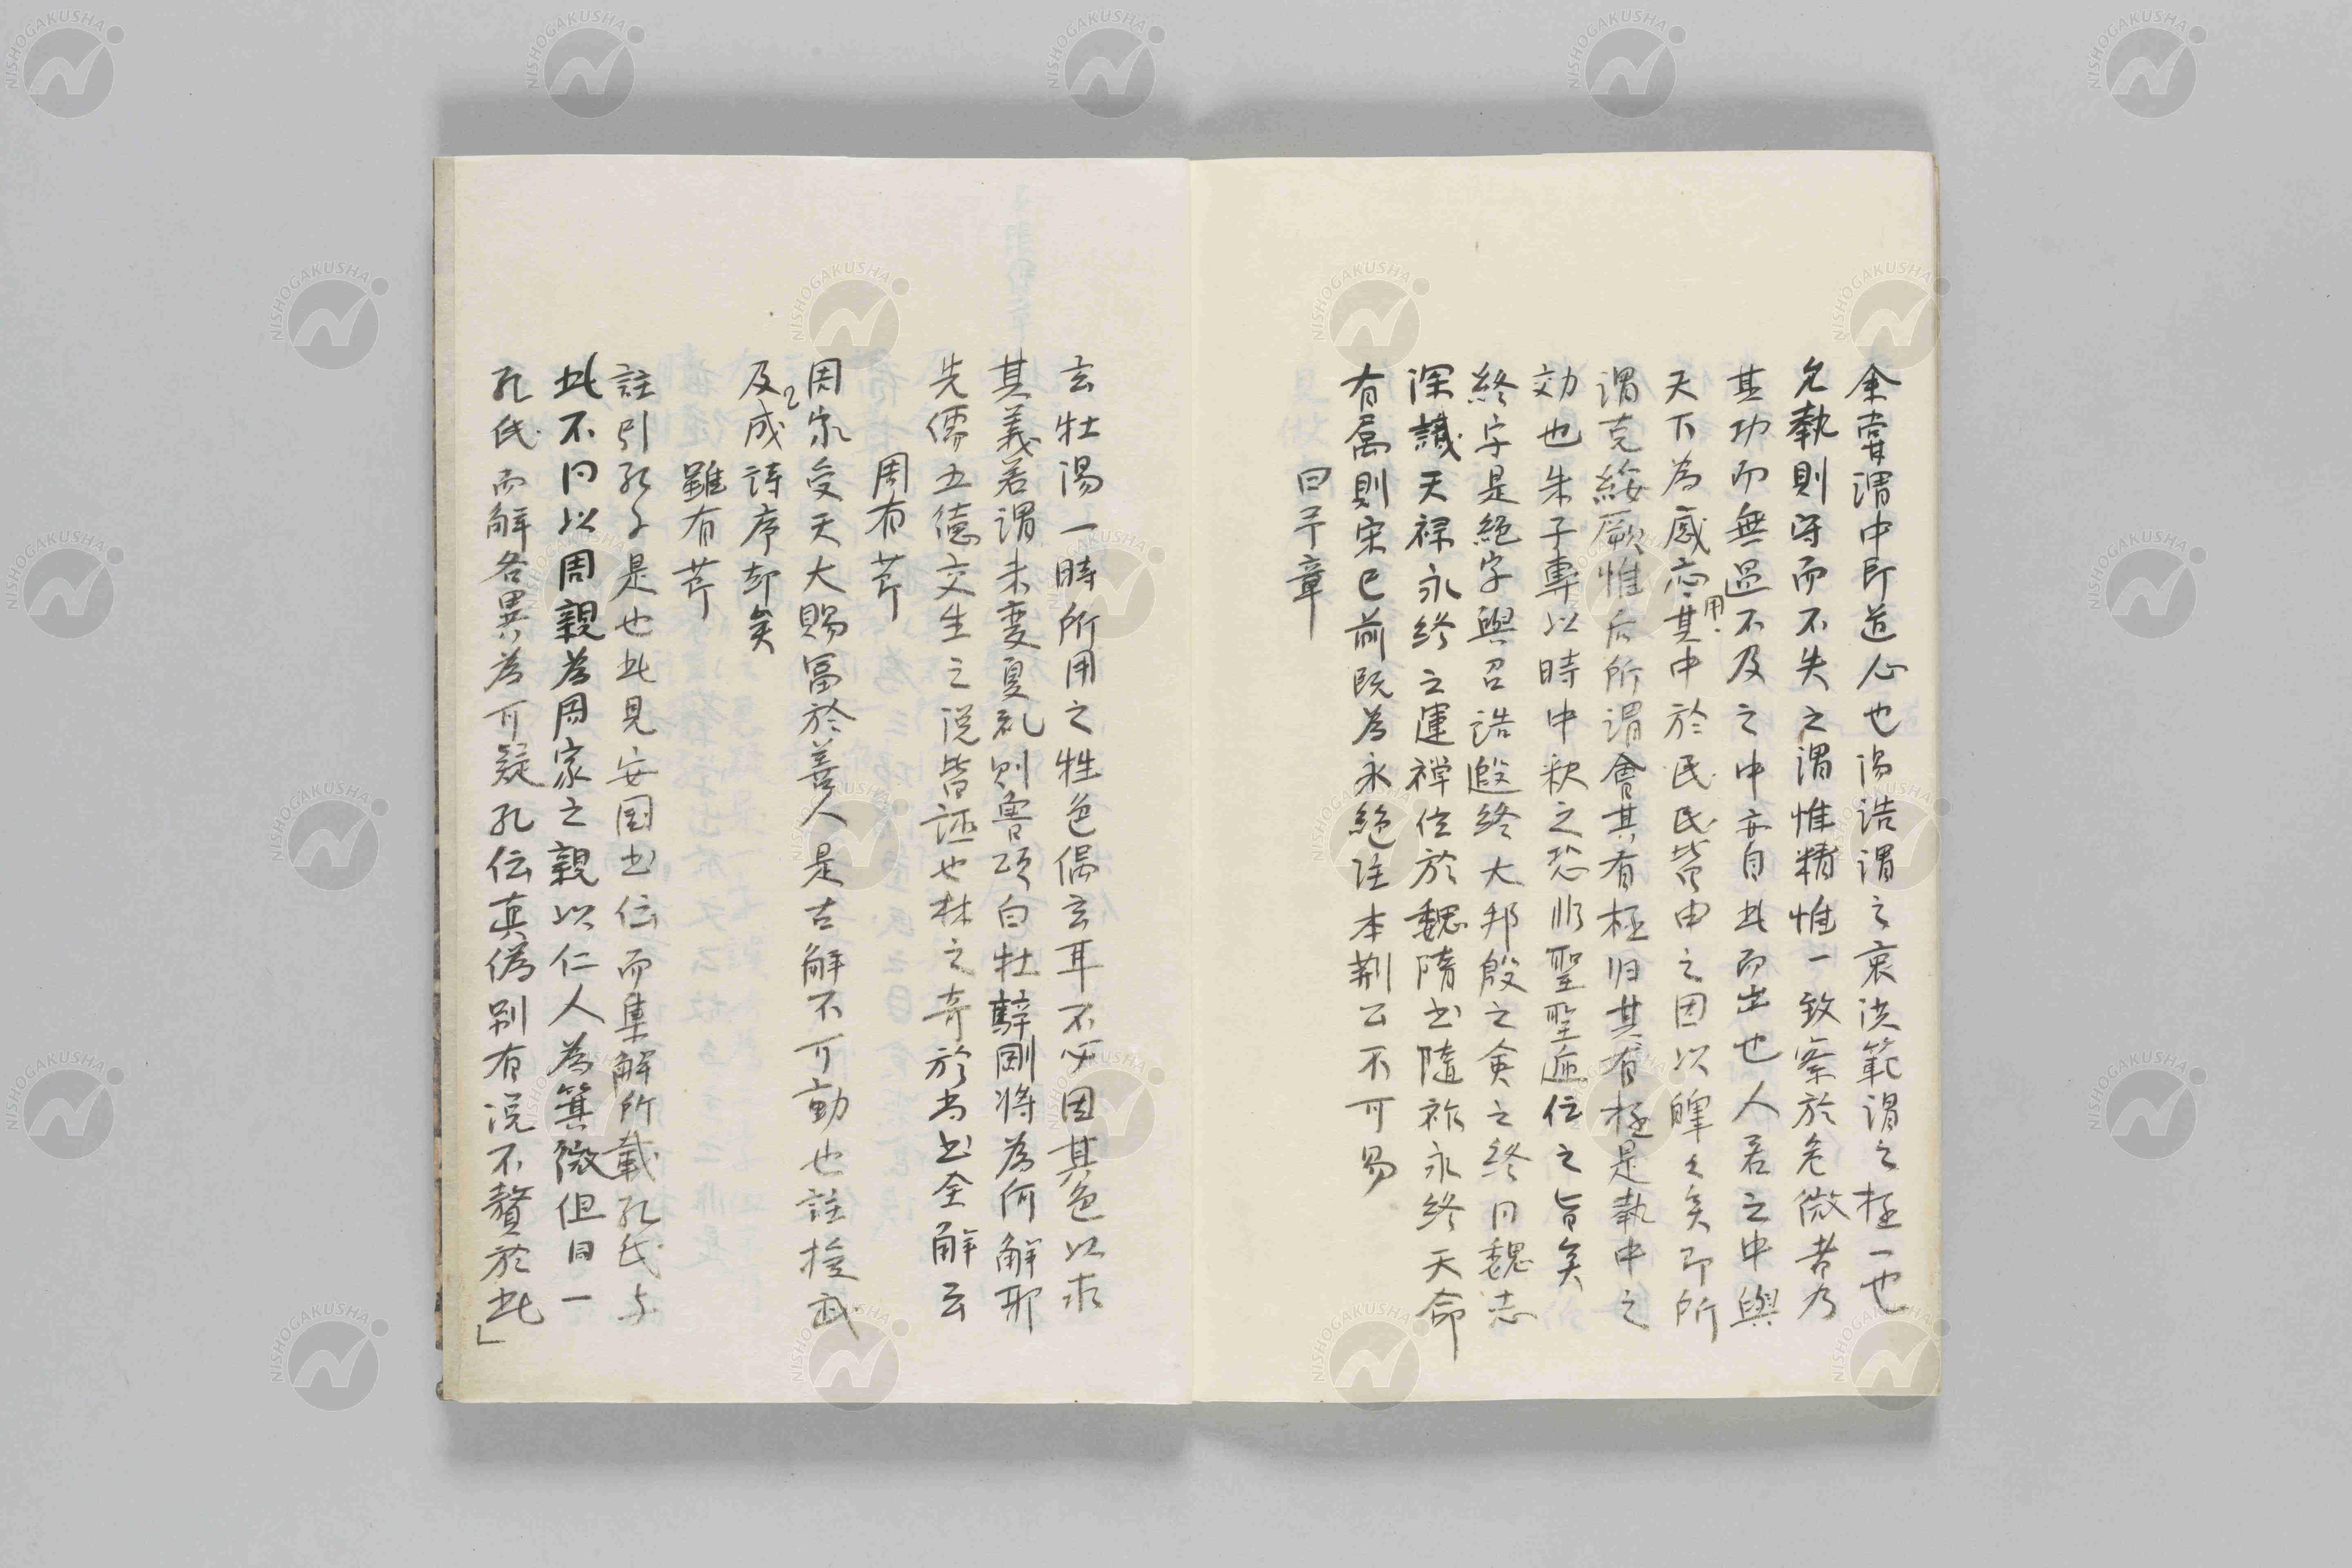 余嘗謂中即道心也湯誥謂之衷洪範謂之極一也
允執則守而不失之謂惟精惟一致察於危微者乃
其功而無過不及之中亦自此而出也人君之中與
天下為感応用其中於民民皆由之因以皥々矣即所
謂克綏厥惟后所謂會其有極归其有極是執中之
効也朱子專以時中釈之恐非聖聖逓伝之旨矣
終字是絕字與召誥遐終大邦殷之命之終同魏志
深識天禄永終之運禅位於魏隋書隨祚永終天命
有属則宋已前既為永絕註本荆公不可易
曰予章
玄牡湯一時所用之牲色偶玄耳不必因其色以求
其義若謂未変夏礼則魯頌白牡騂剛将為何解耶
先儒五徳交生之説皆誣也林之奇於尚書全解云
周有節
周家受天大賜冨於善人是古解不可動也註援武
成及詩序却矣
雖有節
註引孔子是也此見安国書伝而集解所載孔氏与
此不同以周親為周家之親以仁人為箕微但同一
孔氏而解各異為可疑孔伝真偽別有説不贅於此」
NISHOGAKUSHA